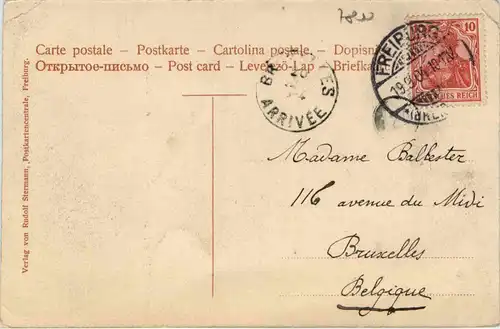 Carte postale - Postkarte - Cartolina postale - Dopisni
Открытое-письмо - Post card - Levelező-Lap - Briefka
FREIBURG
10
ES REICH
ARRIVÉE
Verlag von Rudolf Stermann, Postkartencentrale, Freiburg.
Madame Baltester
116 avenue du Midi
Bruxelles
Belgique